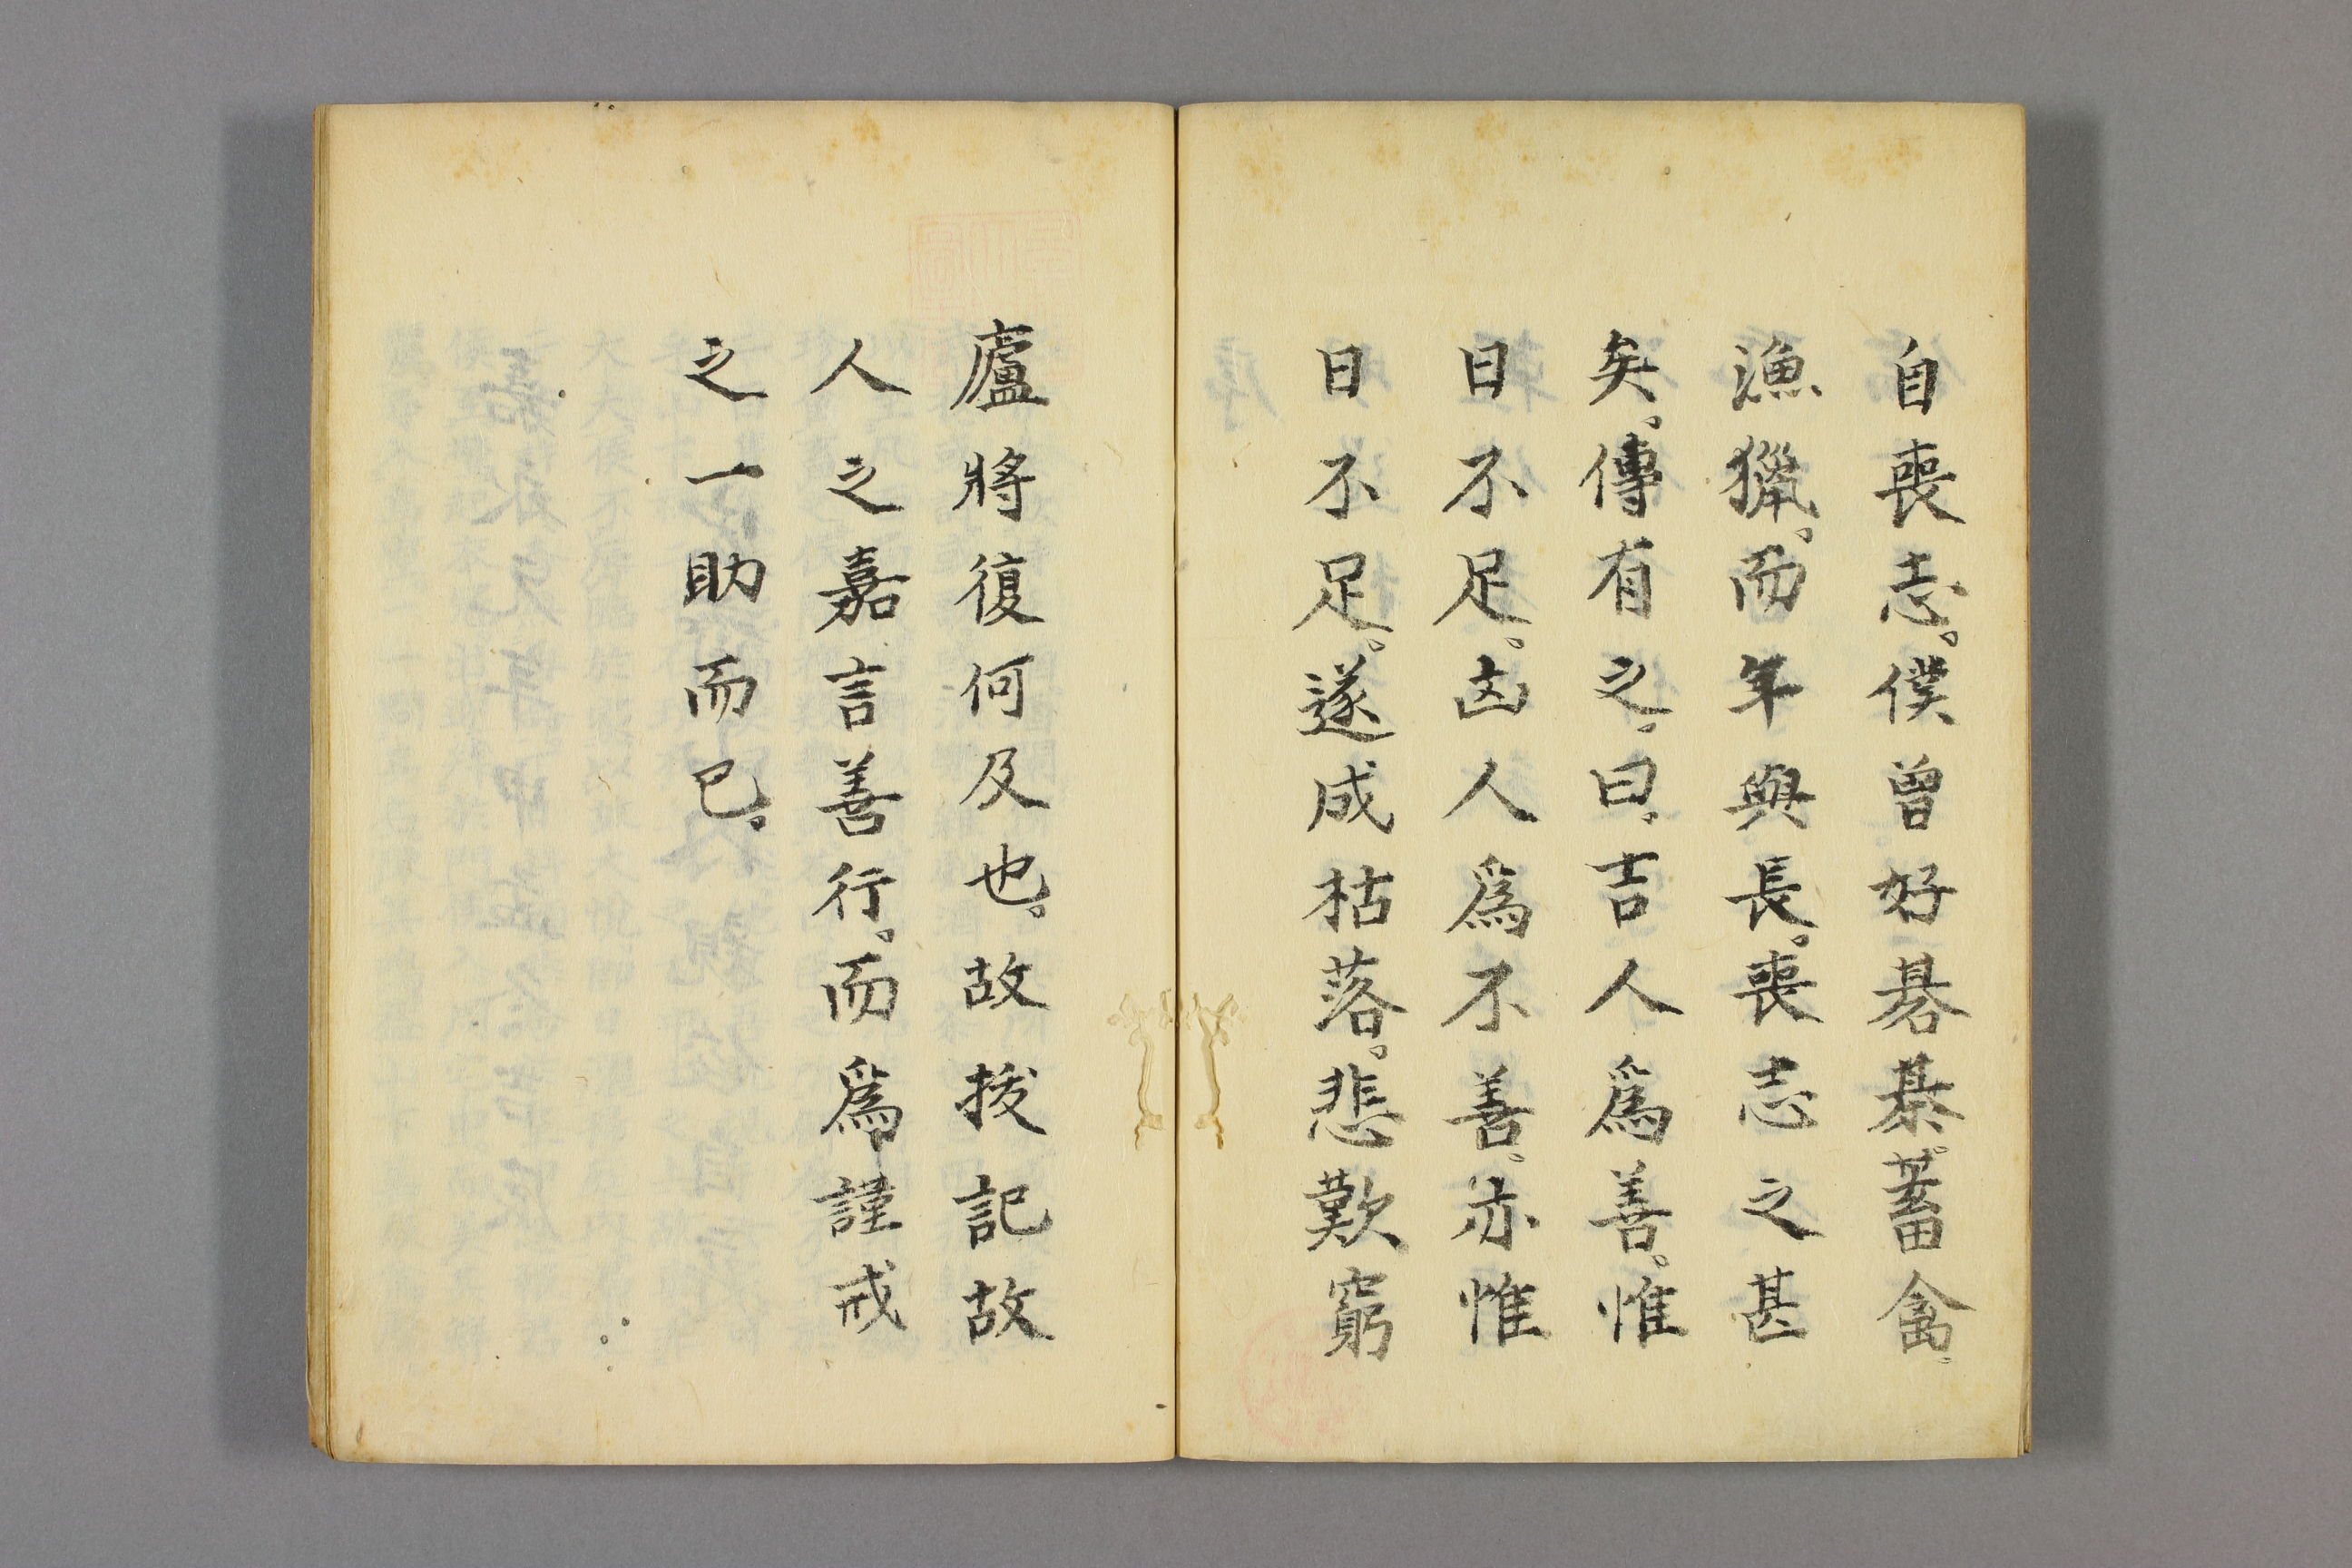 自喪志。僕曾好碁棊。蓄禽。
漁獵。而年與長。喪志之甚
矣。傳有之。曰。吉人爲善。惟
日不足。凶人爲不善。亦惟
日不足。遂成枯落。悲歎窮
廬將復何及也。故拔記故
人之嘉言善行。而爲謹戒
之一助而已。